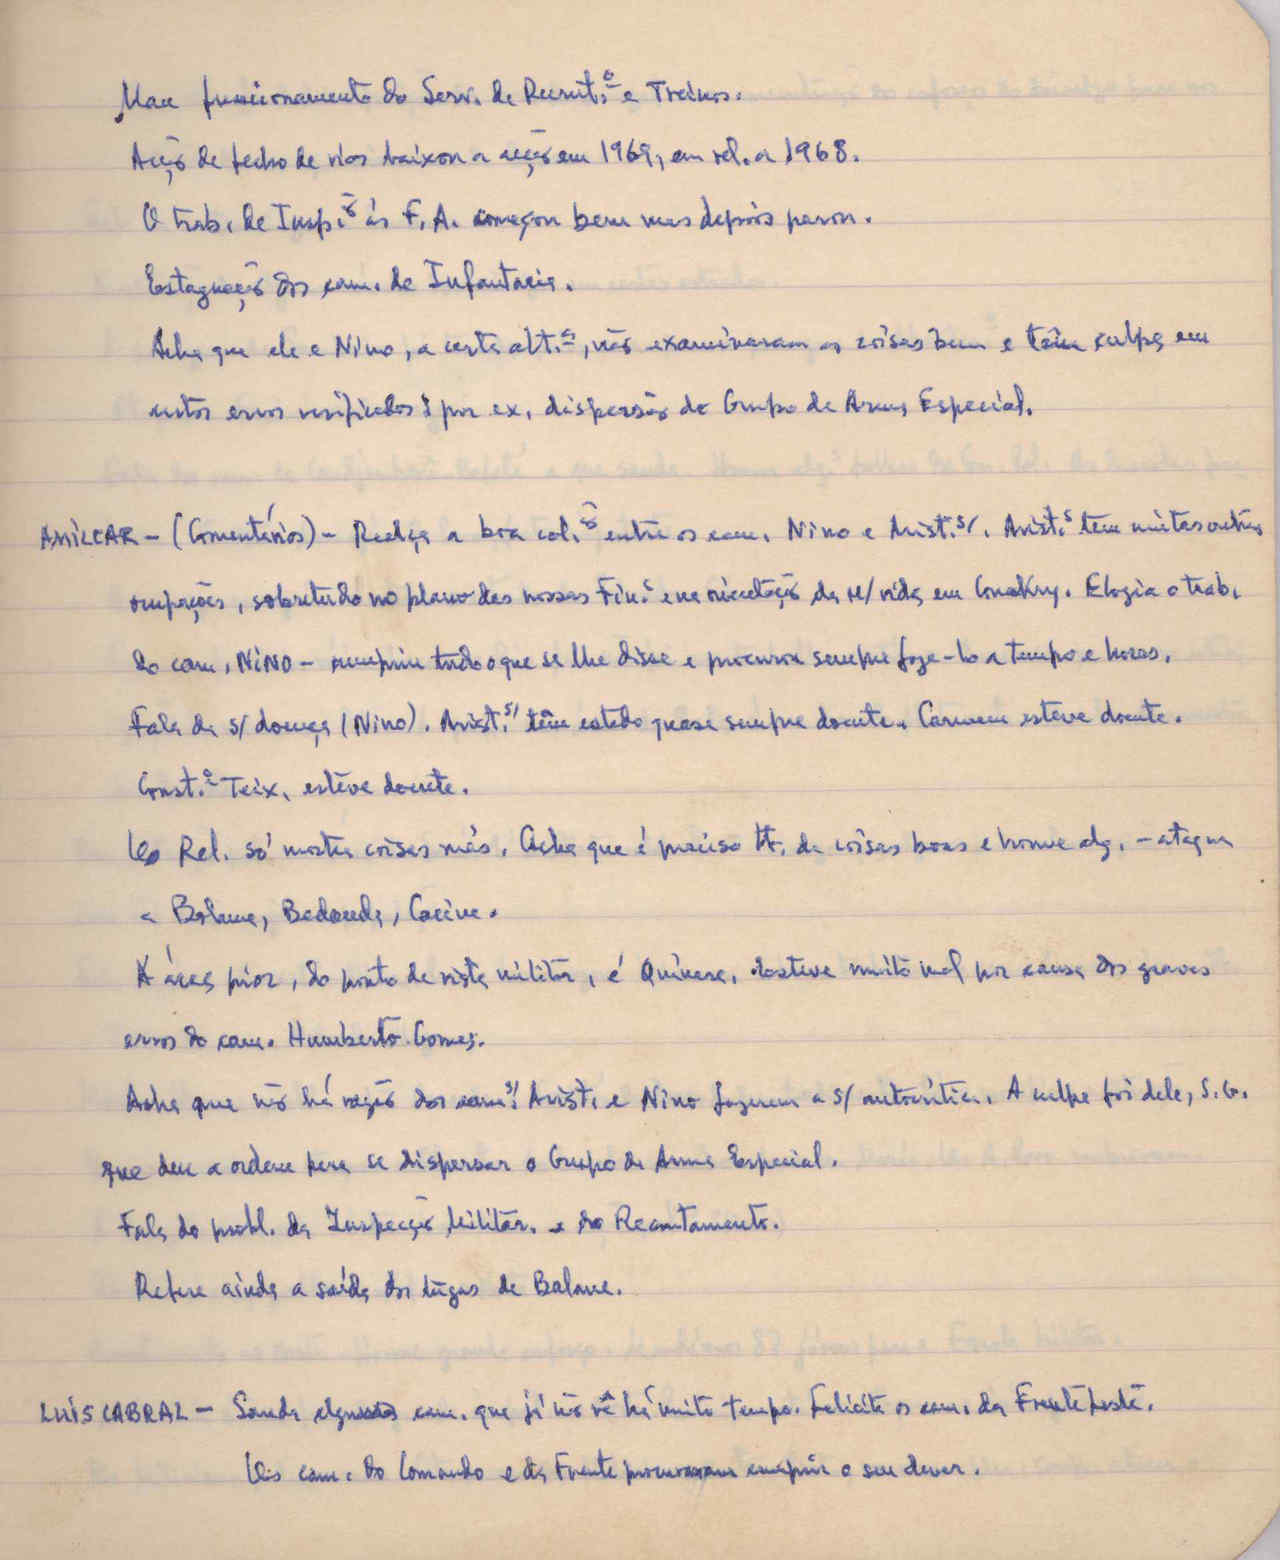 Mau funcionamento do Serv. de Recrut.º e Treinos.
Acção de fecho de rios baixou a acção em 1969, em rel. a 1968.
O trab. de Insp.ção às F.A. começou bem mas depois parou.
Estagnação dos cam. de Infantaria.
Acha que ele e Nino, a certa alt.ª, não examinaram as coisas bem e têm culpa em
certos erros verificados: por ex. dispersão do Grupo de Arma Especial.
AMÍLCAR - (Comentários) - Realça a boa col.ção entre os cam. Nino e Arist.s/. Arist.s têm muitas outras
ocupações, sobretudo no plano das nossas Fin.s e na orientação da n/ vida em Conakry. Elogia o trab.
do cam. NINO - cumpriu tudo o que se lhe disse e procurou sempre fazê-lo a tempo e horas.
Fala da s/ doença (Nino). Arist.s/ têm estado quase sempre doente. Carmen esteve doente.
Const.º Teix. esteve doente.
O Rel. só mostra coisas más. Acha que é preciso tt. de coisas boas e houve alg. - ataque
a Bolama, Bedanda, Cacine.
A área pior, do ponto de vista militar, é Quínara. Esteve muito mal por causa dos graves
erros do cam. Humberto Gomes.
Acha que não há razão dos cam.s/ Arist. e Nino fazerem a s/ autocrítica. A culpa foi dele, S.G.
que deu a ordem para se dispersar o Grupo de Arma Especial.
Fala do probl. da Inspecção Militar. e do Recrutamento.
Refere ainda a saída dos tugas de Balana.
LUÍS CABRAL - Saúda alguns cam. que já não vê há muito tempo. Felicita os cam. da Frente Leste.
Os cam. do Comando e da Frente procuraram cumprir o seu dever.